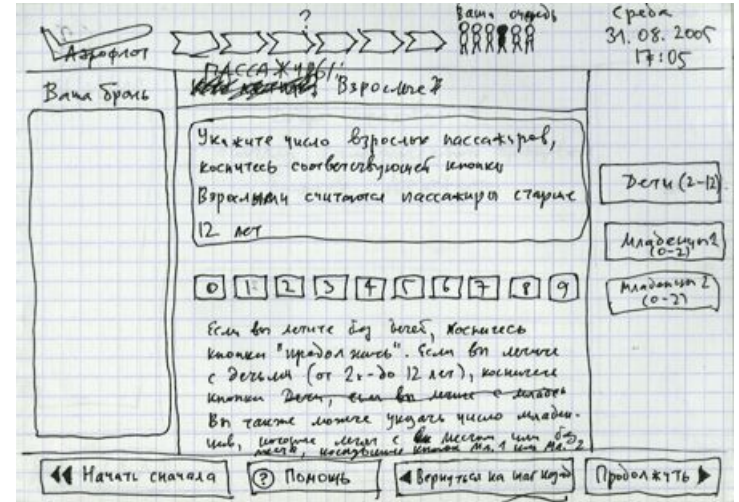 Аэрофлот
?
Ваша очередь
Среда
31.08.2005
17:05
Ваша бронь
ПАССАЖИРЫ:
Взрослые
Укажите число взрослых пассажиров,
коснитесь соответствующей кнопки
Взрослыми считаются пассажиры старше
12 лет
0 1 2 3 4 5 6 7 8 9
Дети (2-12)
Младенцы 1
(0-2)
Младенцы 2
(0-2)
Если вы летите без детей, коснитесь
кнопки "продолжить". Если вы летите
с детьми (от 2х-до 12 лет), коснитесь
кнопки Дети, если вы летите с младен
Вы также можете указать число младен-
цев, которые летят с местом или без
места, кнопок Мл. 1 или Мл. 2
Начать сначала
? Помощь
Вернуться на шаг назад
Продолжить